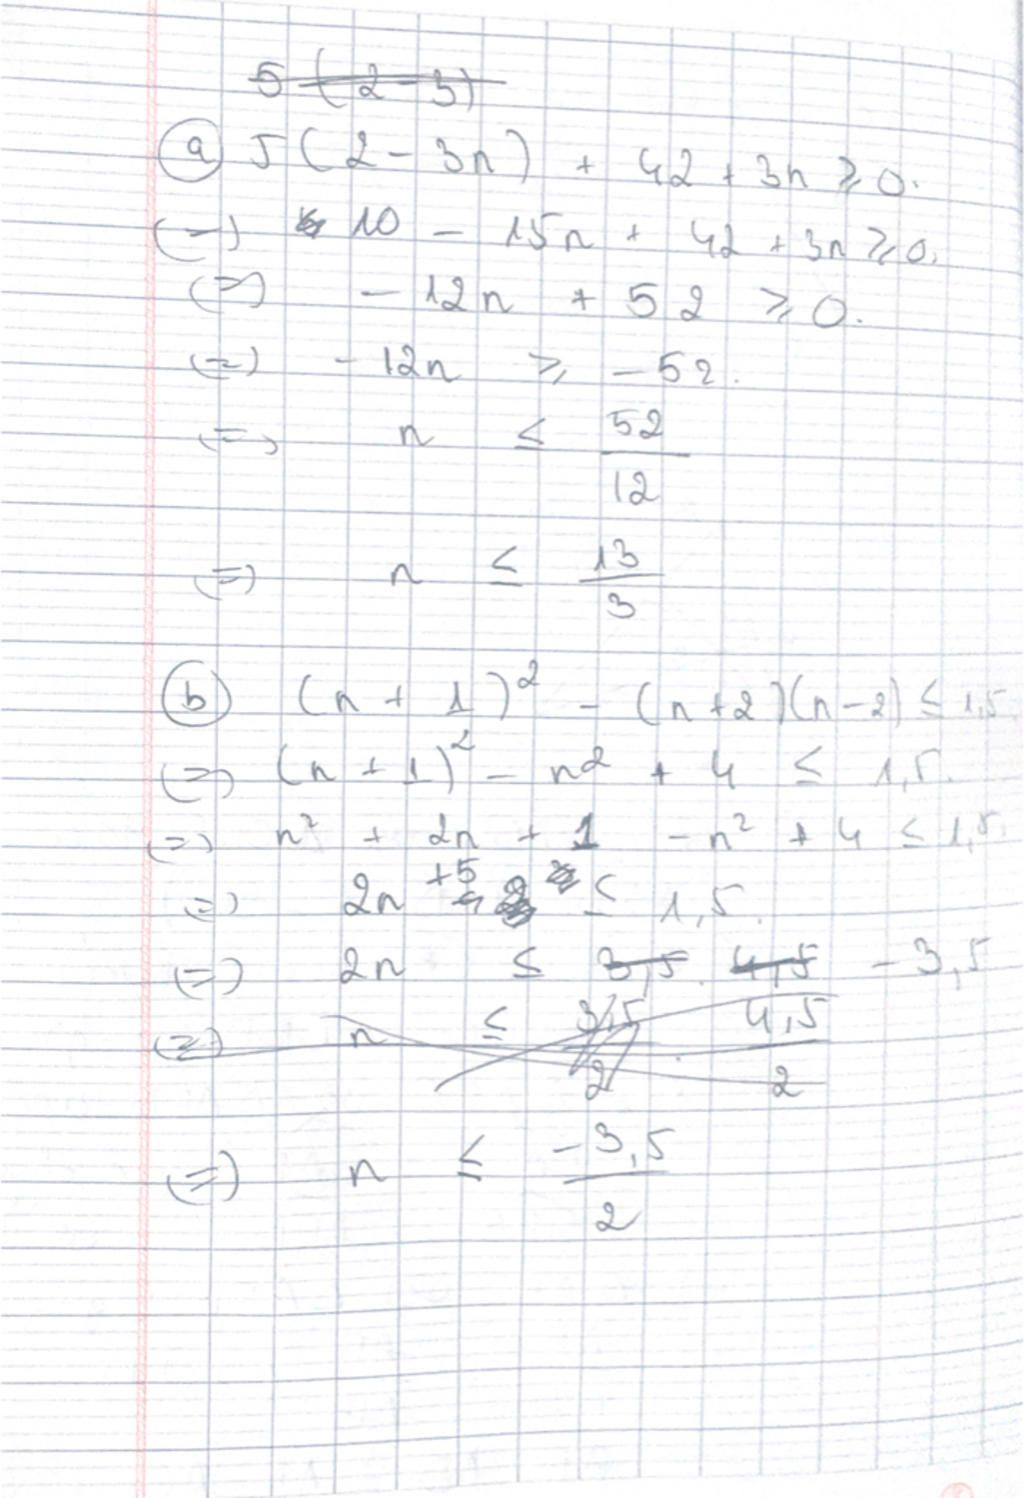 5 (2-3)
a 5(2-3n) + 42 + 3n ⩾ 0.
(=) 10 - 15n + 42 + 3n ⩾ 0.
(=) - 12n + 52 ⩾ 0.
(=) - 12n ⩾ - 52.
(=) n ≤ 52/12
(=) n ≤ 13/3
b (n + 1)² - (n+2)(n-2) ≤ 1,5
(=) (n + 1)² - n² + 4 ≤ 1,5.
(=) n² + 2n + 1 - n² + 4 ≤ 1,5.
(=) 2n +5 ≤ 1,5.
(=) 2n ≤ 3,5. 4,5 - 3,5
(=) n ≤ 3,5/2 . 4,5/2
(=) n ≤ -3,5/2